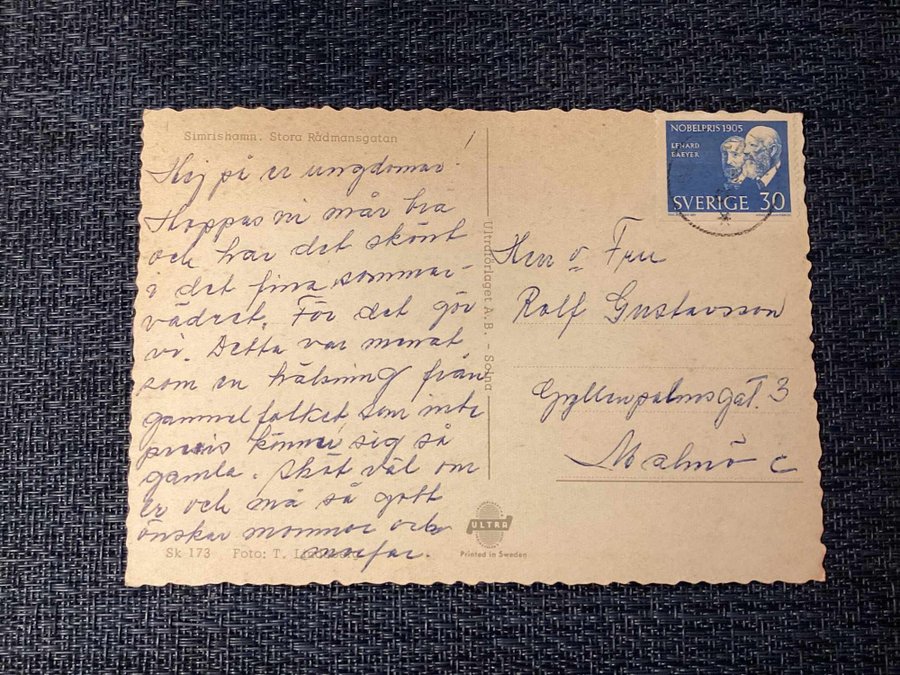 Simrishamn. Stora Rådmansgatan
Hej på er ungdomar!
Hoppas ni mår bra
och har det skönt
i det fina sommar-
vädret. För det gör
vi. Detta var menat
som en hälsning från
gammelfolket som inte
precis känner sig så
gamla. Sköt väl om
er och må så gott
önskar mormor och
morfar.
Sk 173 Foto: T.
Ultraförlaget A.B. - Solna
NOBELPRIS 1905
LENARD
BAEYER
SVERIGE 30
Herr o Fru
Rolf Gustavsson
Gyllenpalmsgat. 3
Malmö C
ULTRA
Printed in Sweden